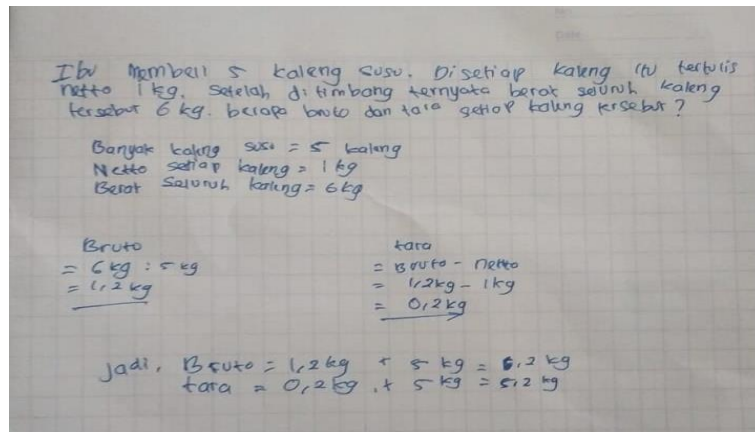 Ibu membeli 5 kaleng susu. Disetiap kaleng itu tertulis
netto 1 kg. setelah ditimbang ternyata berat seluruh kaleng
tersebut 6 kg. berapa bruto dan tara setiap kaleng tersebut?
Banyak kaleng susu = 5 kaleng
Netto setiap kaleng = 1 kg
Berat seluruh kaleng = 6 kg
Bruto
= 6 kg : 5 kg
= 1,2 kg
tara
= Bruto - netto
= 1,2 kg - 1 kg
= 0,2 kg
Jadi, Bruto = 1,2 kg + 5 kg = 6,2 kg
tara = 0,2 kg + 5 kg = 5,2 kg